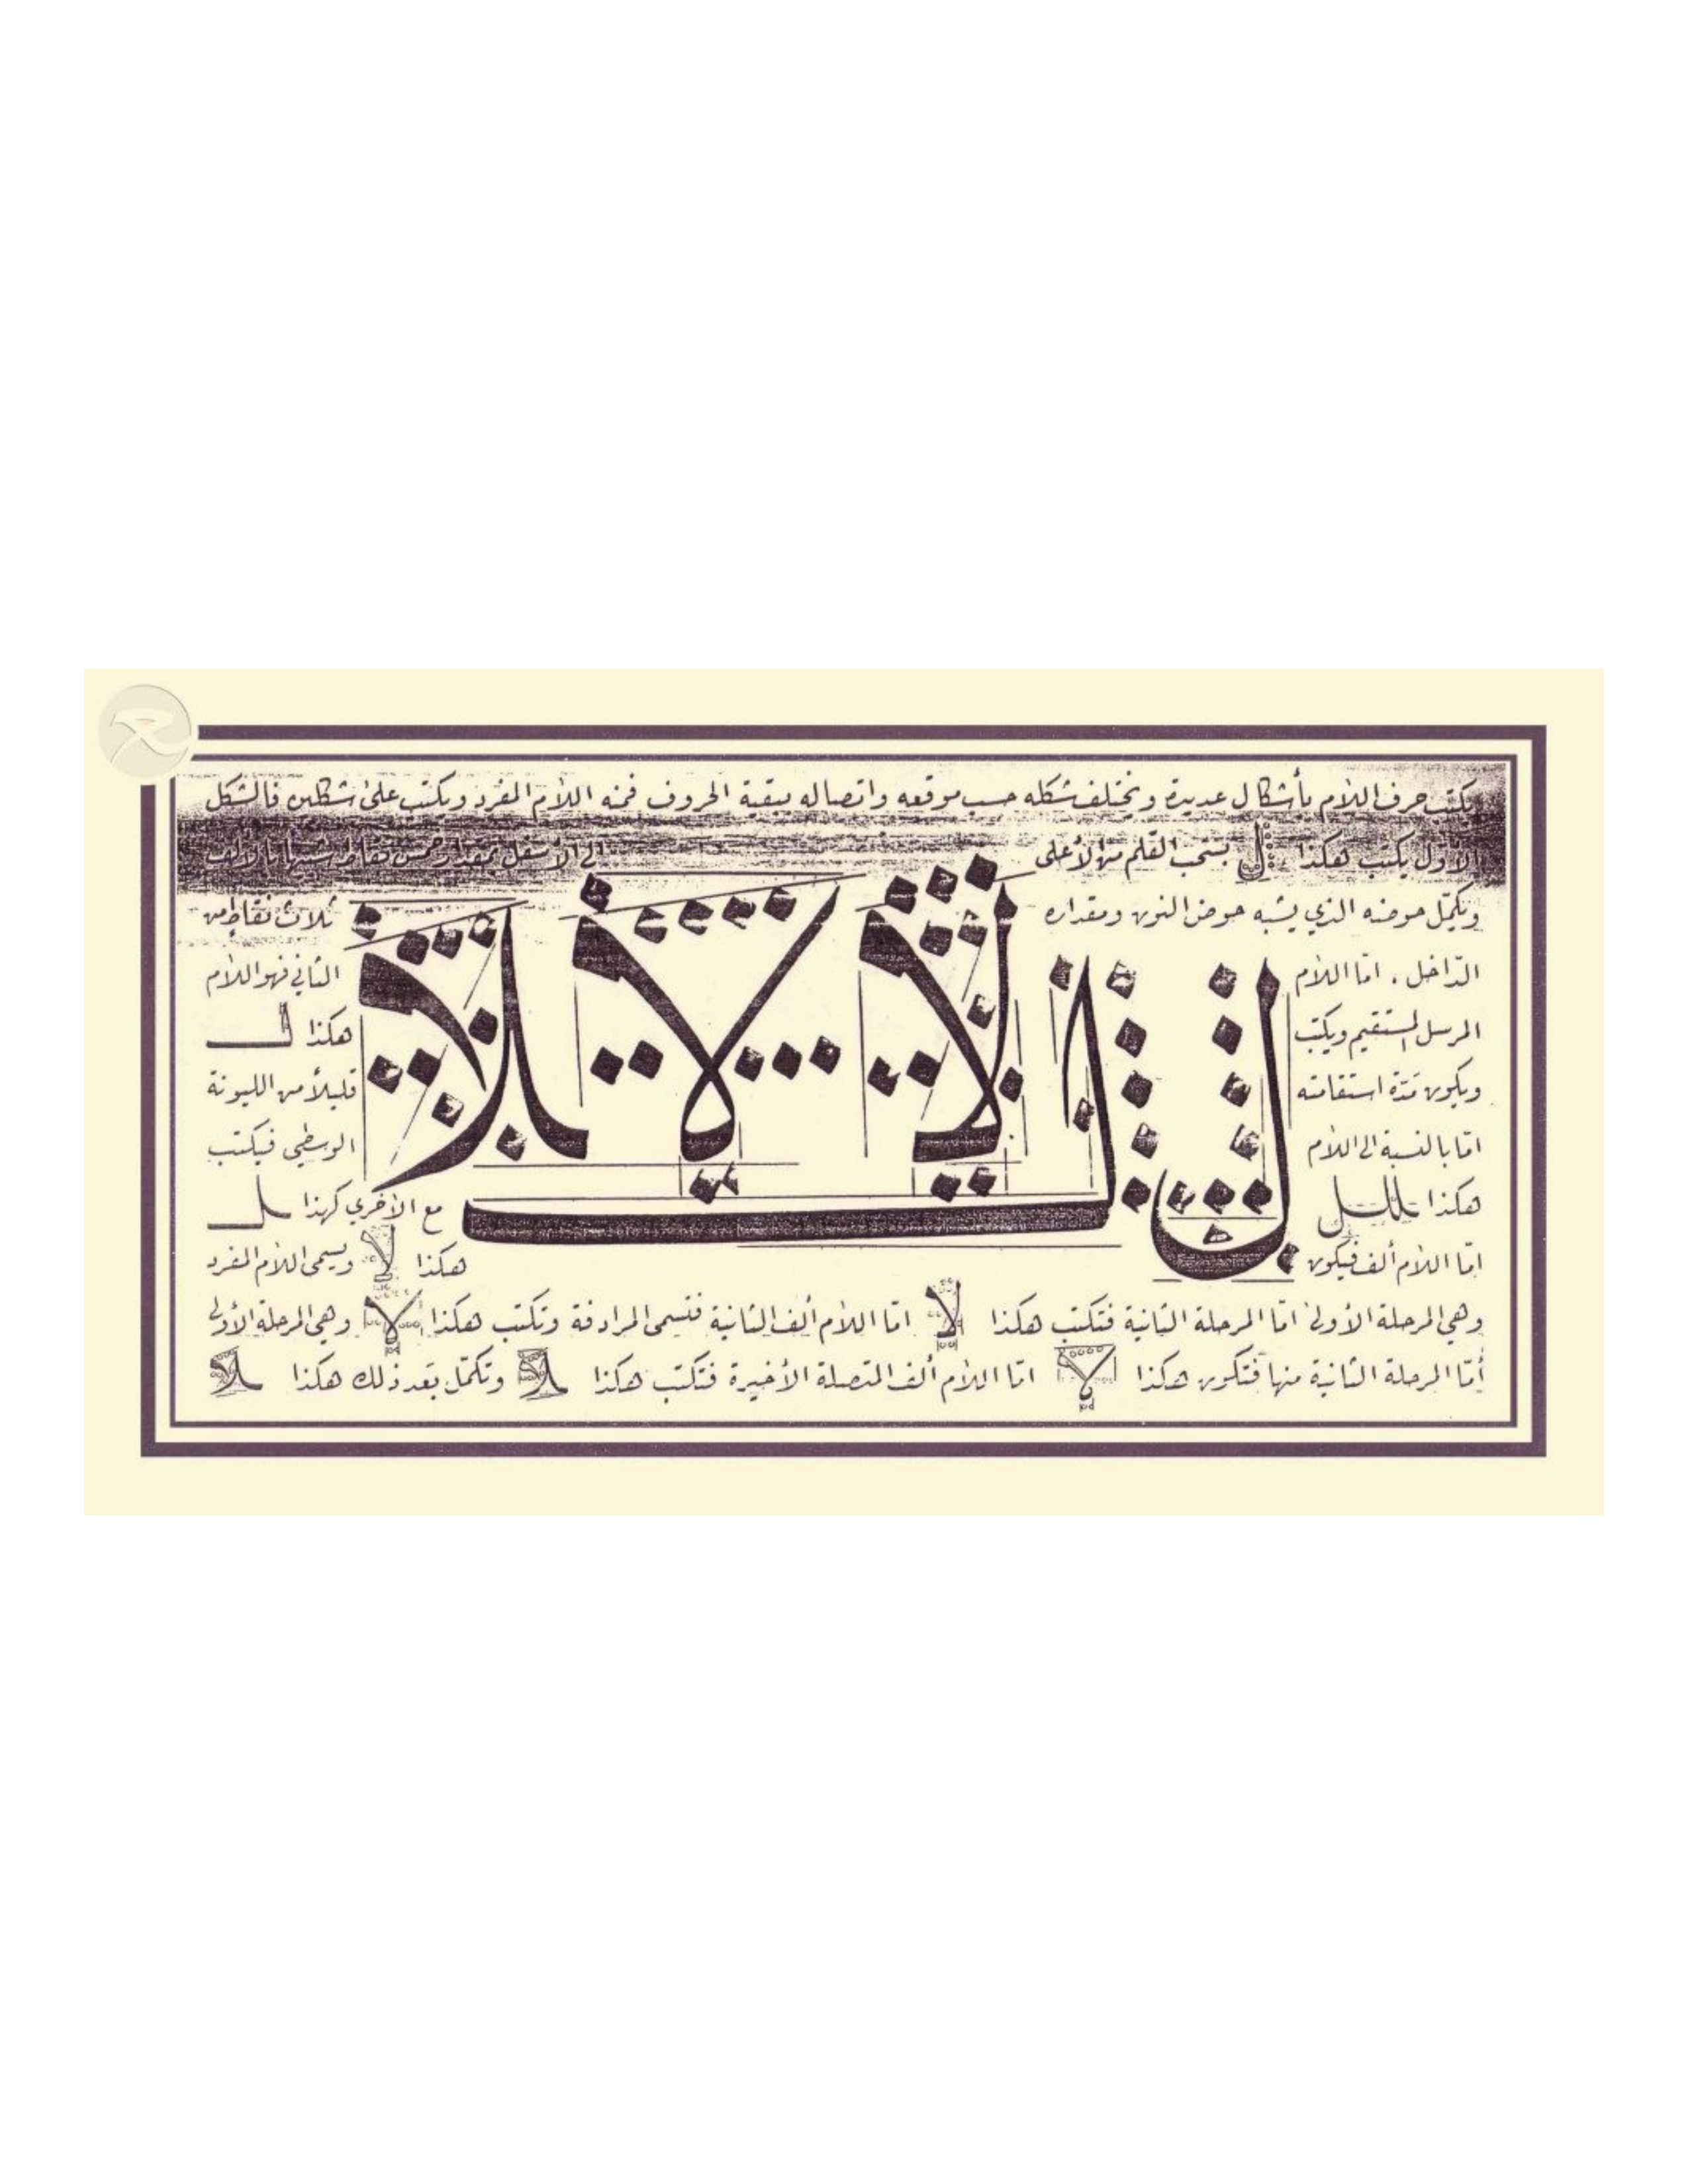 يكتب حرف اللام بأشكال عديدة ويختلف شكله حسب موقعه واتصاله ببقية الحروف فمنه اللام المفرد ويكتب على شكلين فالشكل
الأول يكتب هكذا ل يسحب القلم من الأعلى إلى الأسفل بمقدار خمس نقاط شبيها بالألف
ويكمّل حوضه الذي يشبه حوض النون ومقداره ثلاث نقاط من
الدّاخل . امّا اللام الثاني فهو اللام
المرسل المستقيم ويكتب هكذا لـ
ويكون مَدّة استقامته قليلاً من الليونة
امّا بالنسبة الى اللام الوسطي فيكتب
هكذا مع الأخرى كهذا لـ
امّا اللام ألف فيكون هكذا لا ويسمى اللام المفرد
وهي المرحلة الأولى امّا المرحلة الثانية فتكتب هكذا لا امّا اللام ألف الثانية فتسمى المرادفة وتكتب هكذا لا وهي المرحلة الأولى
أمّا المرحلة الثانية منها فتكون هكذا لا امّا اللام ألف المتصلة الأخيرة فتكتب هكذا لا وتكمّل بعد ذلك هكذا لا
ل لـ لا لا لا